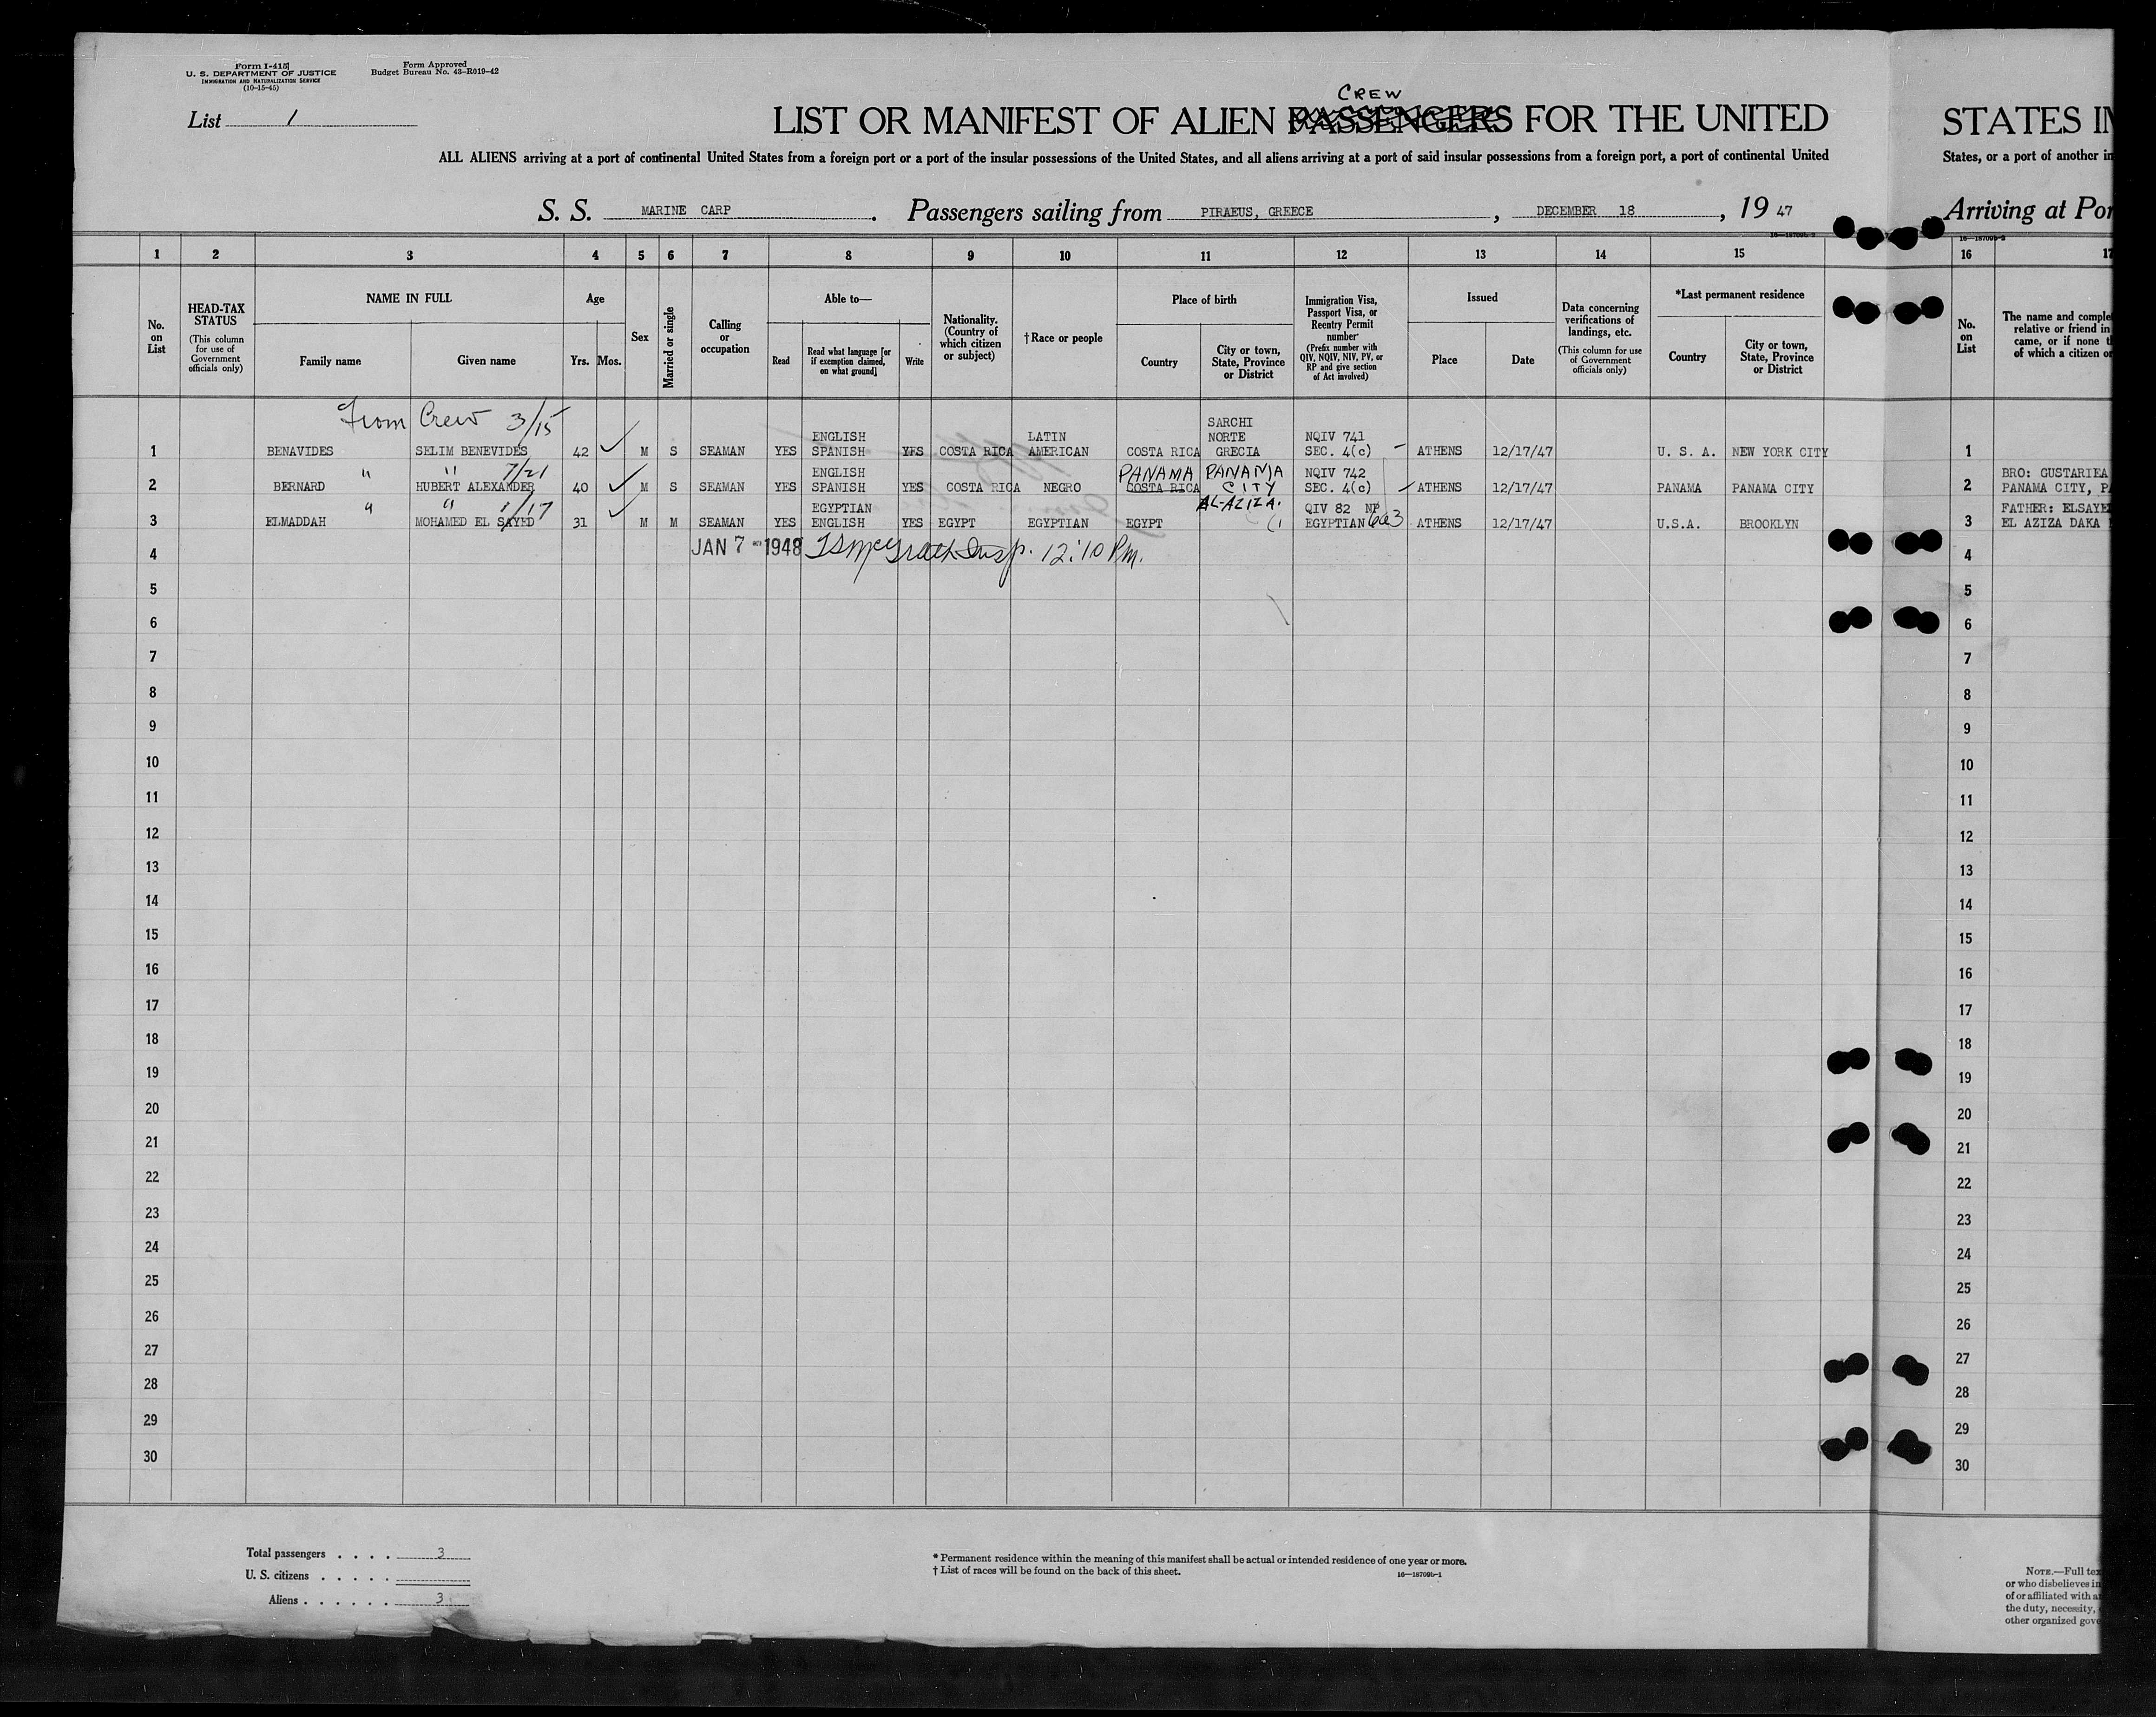 Form I-415
U. S. DEPARTMENT OF JUSTICE
IMMIGRATION AND NATURALIZATION SERVICE
(10-15-45)
Form Approved
Budget Bureau No. 43-R019-42
List 1
CREW
LIST OR MANIFEST OF ALIEN PASSENGERS FOR THE UNITED
STATES IN
ALL ALIENS arriving at a port of continental United States from a foreign port or a port of the insular possessions of the United States, and all aliens arriving at a port of said insular possessions from a foreign port, a port of continental United
States, or a port of another in
S. S. MARINE CARP. Passengers sailing from PIRAEUS, GREECE, DECEMBER 18, 19 47
Arriving at Por
16—18709b-2
1 2 3 4 5 6 7 8 9 10 11 12 13 14 15 16 17
No. on List
HEAD-TAX STATUS
(This column for use of Government officials only)
NAME IN FULL
Family name
Given name
Age
Yrs. Mos.
Sex
Married or single
Calling or occupation
Able to—
Read
Read what language [or if exemption claimed, on what ground]
Write
Nationality. (Country of which citizen or subject)
†Race or people
Place of birth
Country
City or town, State, Province or District
Immigration Visa, Passport Visa, or Reentry Permit number
(Prefix number with QIV, NQIV, NIV, PV, or RP and give section of Act involved)
Issued
Place
Date
Data concerning verifications of landings, etc.
(This column for use of Government officials only)
*Last permanent residence
Country
City or town, State, Province or District
No. on List
The name and comple
relative or friend in
came, or if none t
of which a citizen or
From Crew 3/15
1 BENAVIDES SELIM BENEVIDES 42 M S SEAMAN YES ENGLISH SPANISH YES COSTA RICA LATIN AMERICAN COSTA RICA SARCHI NORTE GRECIA NQIV 741 SEC. 4(c) ATHENS 12/17/47 U. S. A. NEW YORK CITY 1
" " 7/21
2 BERNARD HUBERT ALEXANDER 40 M S SEAMAN YES ENGLISH SPANISH YES COSTA RICA NEGRO PANAMA COSTA RICA PANAMA CITY NQIV 742 SEC. 4(c) ATHENS 12/17/47 PANAMA PANAMA CITY 2 BRO: GUSTARIEA PANAMA CITY, PA
" " 1/17
3 ELMADDAH MOHAMED EL SAYED 31 M M SEAMAN YES EGYPTIAN ENGLISH YES EGYPT EGYPTIAN EGYPT AL-AZIZA. QIV 82 NP EGYPTIAN 663 ATHENS 12/17/47 U.S.A. BROOKLYN 3 FATHER: ELSAYE EL AZIZA DAKA
4 JAN 7 1948 McGrath Insp. 12:10 P.m. 4
5 5
6 6
7 7
8 8
9 9
10 10
11 11
12 12
13 13
14 14
15 15
16 16
17 17
18 18
19 19
20 20
21 21
22 22
23 23
24 24
25 25
26 26
27 27
28 28
29 29
30 30
Total passengers . . . . 3
U. S. citizens . . . . .
Aliens . . . . . . 3
* Permanent residence within the meaning of this manifest shall be actual or intended residence of one year or more.
† List of races will be found on the back of this sheet.
16—18709b-1
NOTE.—Full tex
or who disbelieves in
of or affiliated with a
the duty, necessity,
other organized gove